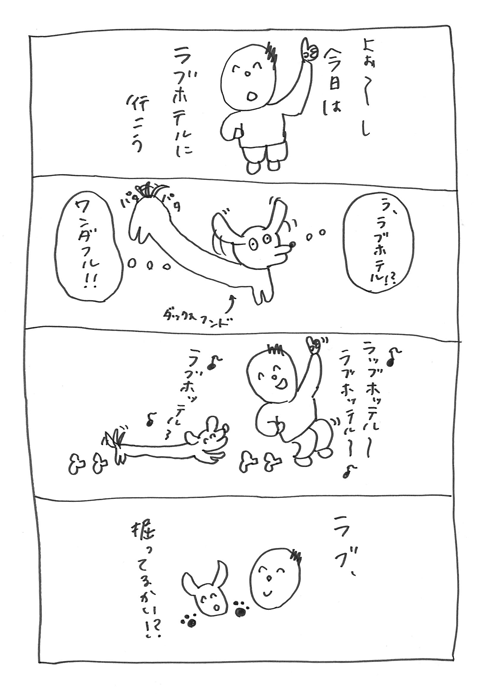 よぉ〜し
今日は
ラブホテルに
行こう
ラ、ラブホテル!?
ワンダフル!!
パタ
パタ
ダックスフンド
ラッブホッテル〜
ラブホッテル〜
ラブホッテル〜
ラブ、
掘ってるかい!?